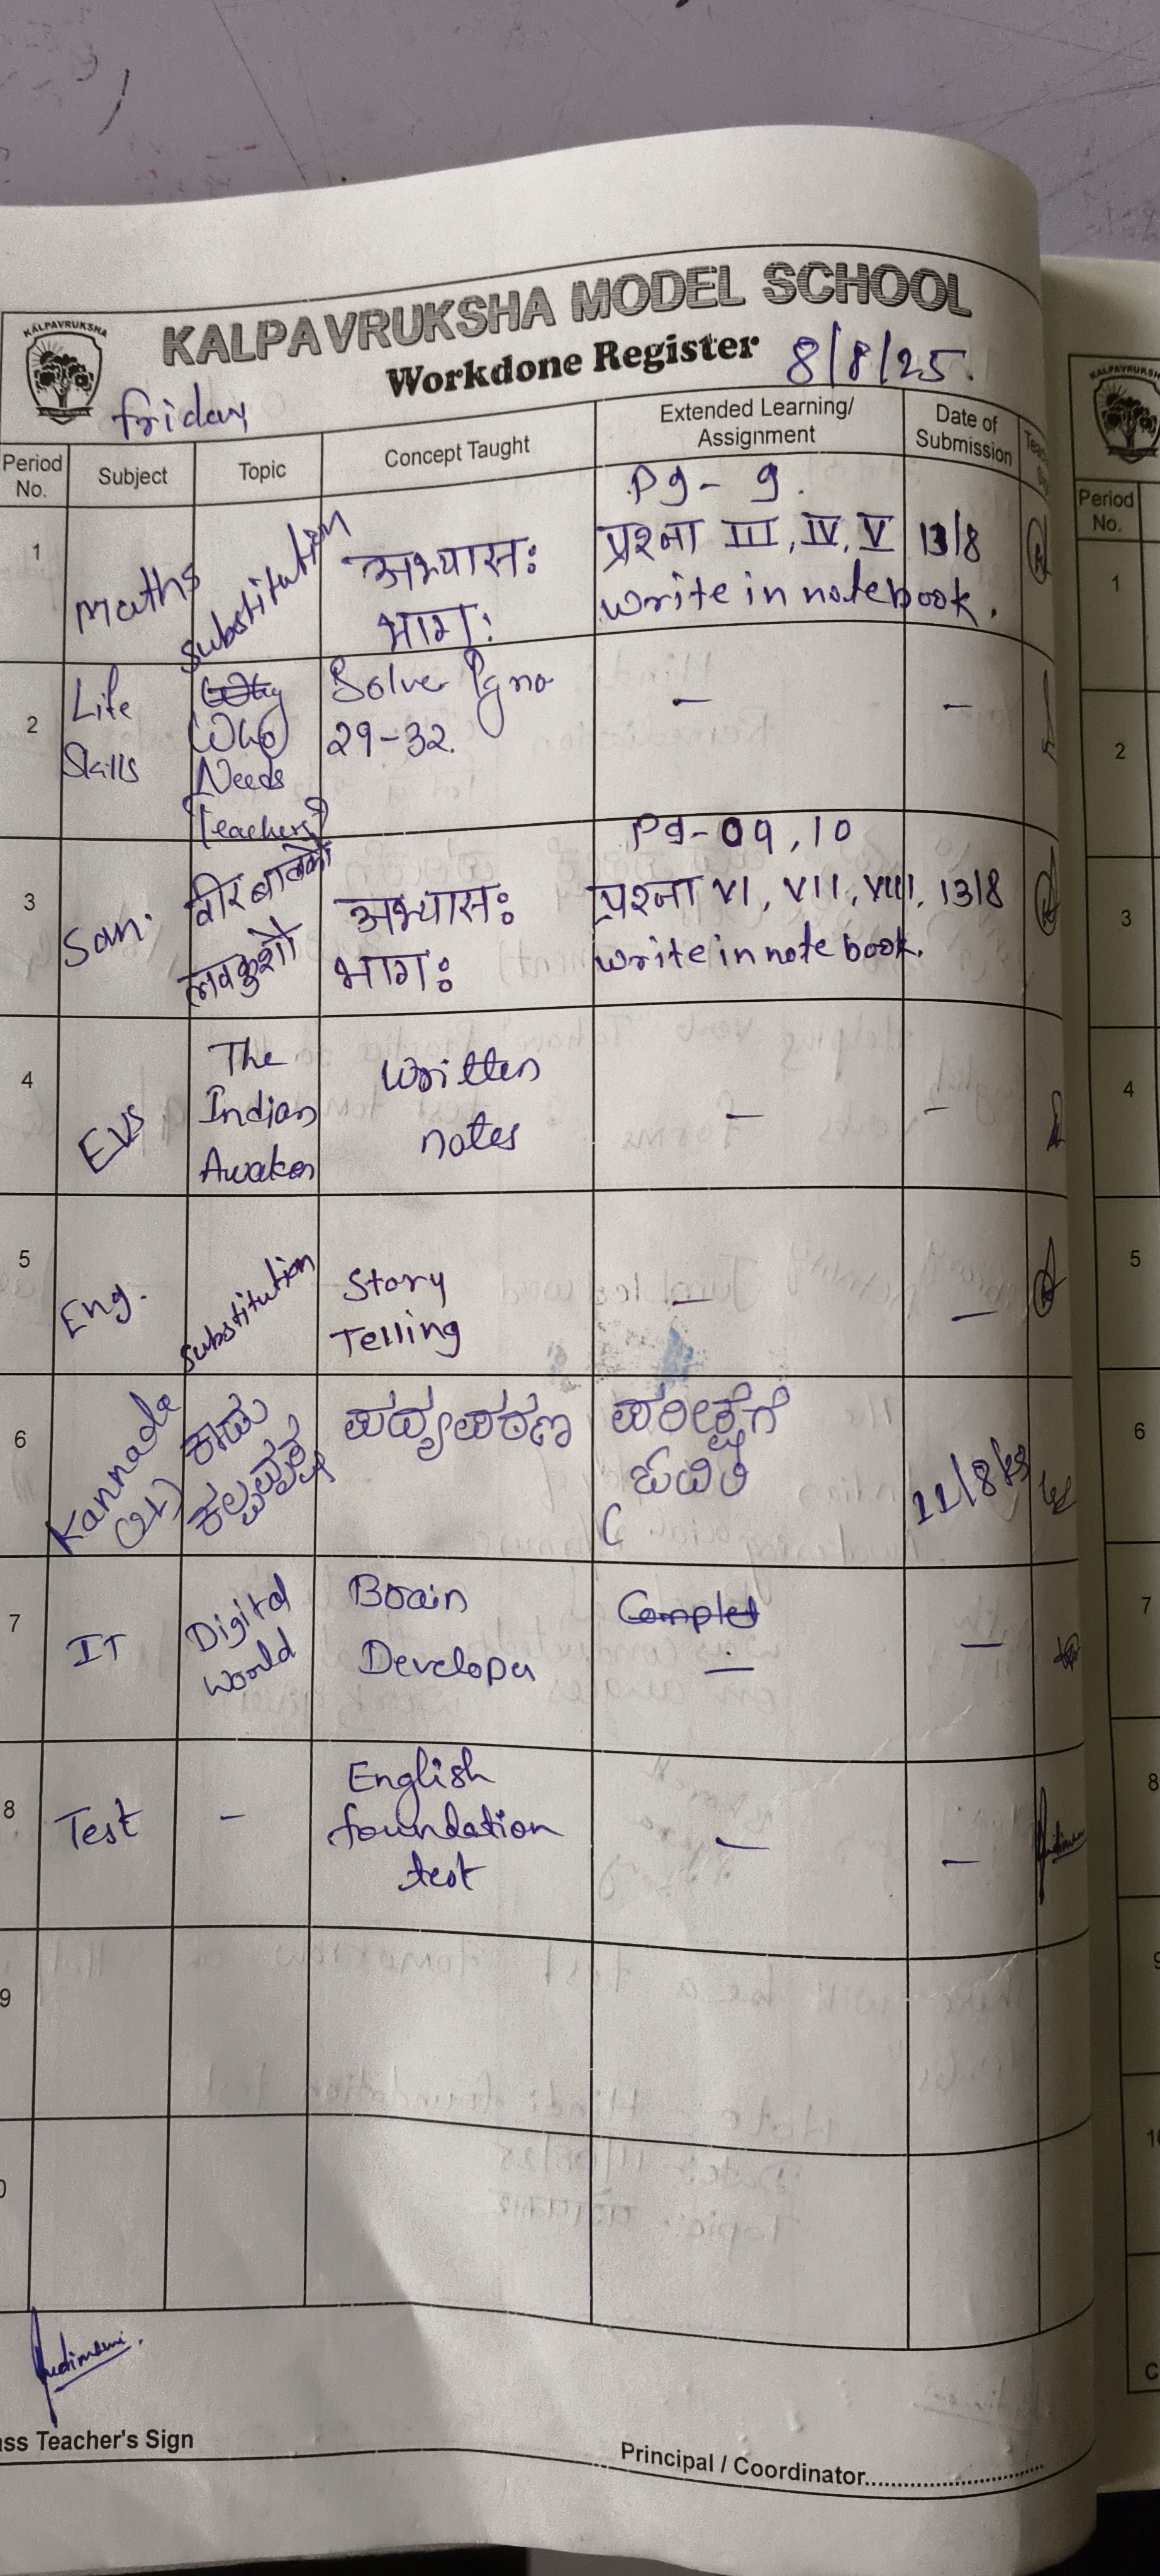 KALPAVRUKSHA
KALPAVRUKSHA MODEL SCHOOL
Workdone Register 8/8/25.
friday
Period No. Subject Topic Concept Taught Extended Learning/ Assignment Date of Submission
1 Maths Substitution अभ्यासः भागः Pg- 9.
प्रश्ना III, IV, V 13/8
write in notebook.
2 Life Skills Who Needs Teachers? Solve Pg no 29-32. — —
3 San. वीर बालकौ लवकुशौ अभ्यासः भागः Pg-09, 10
प्रश्ना VI, VII, VIII, 13/8
write in note book.
4 EVS The Indian Awaken Written notes — —
5 Eng. Substitution Story Telling — —
6 Kannada (2L) ಕಾಡು ಪದ್ಯಪಠಣ ಪರೀಕ್ಷೆಗೆ ಓದಿರಿ 11/8/25
7 IT Digital World Brain Developer — —
8 Test - English foundation test — —
9
Class Teacher's Sign
Principal / Coordinator
KALPAVRUKSHA
Period No.
1
2
3
4
5
6
7
8